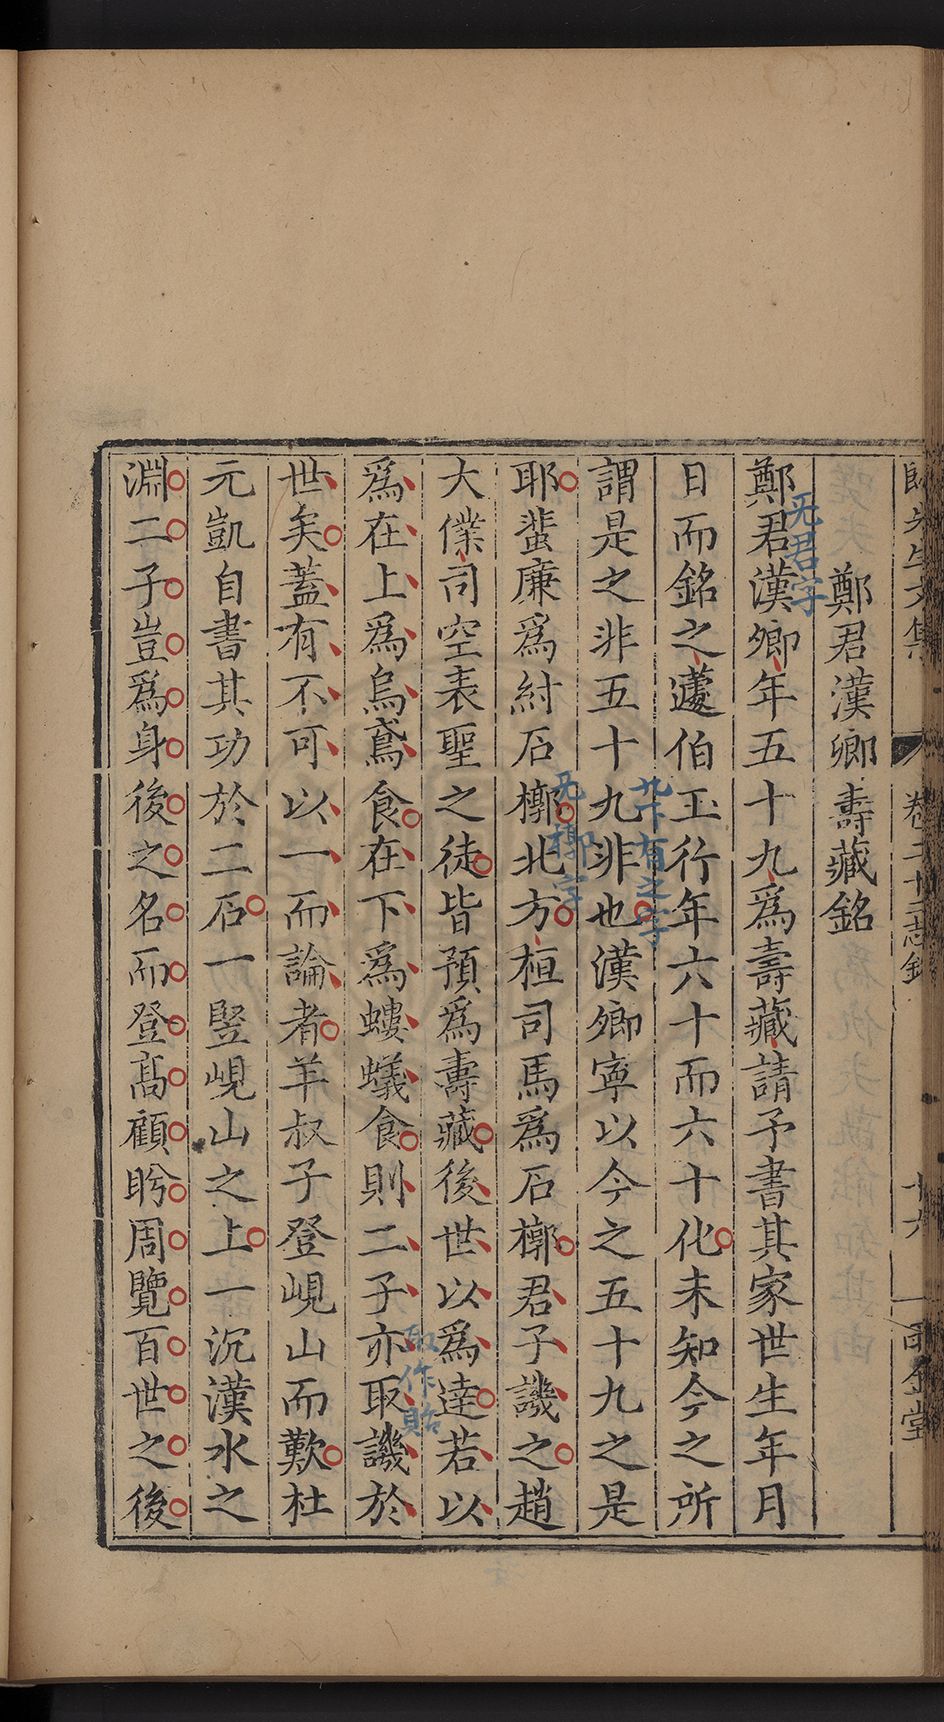 鄭君漢卿壽藏銘
鄭君漢卿年五十九爲壽藏請予書其家世生年月
日而銘之蘧伯玉行年六十而六十化未知今之所
謂是之非五十九非也漢卿寧以今之五十九之是
耶蜚廉爲紂石槨北方桓司馬爲石槨君子譏之趙
大僕司空表聖之徒皆預爲壽藏後世以爲達若以
爲在上爲烏鳶食在下爲螻蟻食則二子亦取譏於
世矣蓋有不可以一而論者羊叔子登峴山而歎杜
元凱自書其功於二石一竪峴山之上一沉漢水之
淵二子豈爲身後之名而登髙顧盻周覽百世之後
无君字
九下有之字
无槨字
取作貽
卷二十三志銘
十六